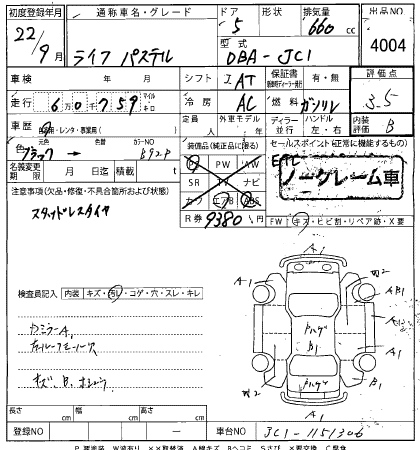 初度登録年月 22年 9月
通称車名・グレード ライフ パステル
ドア 5 形状
排気量 660 cc
出品NO 4004
型式 DBA-JC1
車検 年 月
シフト IAT
保証書 有・無
評価点 3.5
走行 6万0千759 マイル キロ
冷房 AC
燃料 ガソリン
内装 B
車歴 自家用・レンタ・事業用
定員 人
外車モデル 年
ディーラー 並行
ハンドル 左・右
色 元色 ブラック → 色 カラーNO B92P
装備品(純正品に限る)
PS PW AW
SR TV ナビ
カワ エアB ABS
R券 9380円
セールスポイント(正常に機能するもの)
ETC
ノークレーム車
名義変更期限 月 日迄 積載 t
注意事項(欠品・修復・不具合箇所および状態)
スタッドレスタイヤ
FW キズ・ヒビ割・リペア跡・X要
検査員記入 内装 キズ・汚れ・コゲ・穴・スレ・キレ
カミラーA1
キズB、ホショウ
A1
A1
W2
AB1
A1
A1
トハゲ
B1
トハゲ
W2
B1
A1
長さ cm
幅 cm
高さ cm
登録NO
車台NO JC1-1151306
P 要塗装 W波有り ××取替済 A線キズ Bヘコミ Sさび ×要交換 C腐食